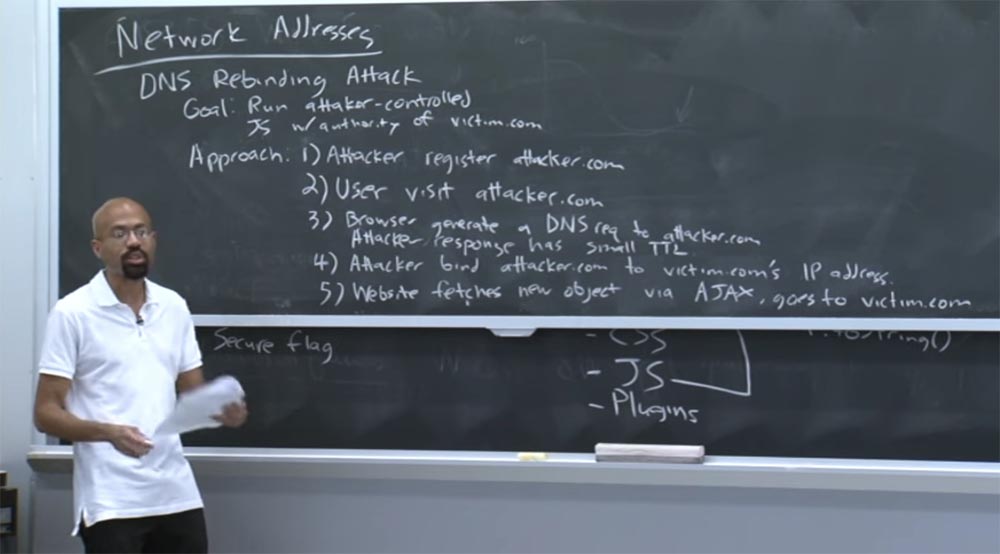 Network Addresses
DNS Rebinding Attack
Goal: Run attaker-controlled
JS w/authority of victim.com
Approach: 1) Attacker register attacker.com
2) User visit attacker.com
3) Browser generate a DNS req to attacker.com
Attacker response has small TTL.
4) Attacker bind attacker.com to victim.com's IP address.
5) Website fetches new object via AJAX, goes to victim.com
Secure flag
- CSS
- JS
- Plugins